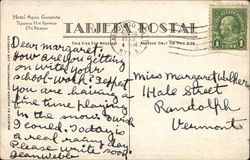 Hotel Agua Caliente
Tijuana Hot Springs
Old Mexico
TARJETA POSTAL
THIS SIDE FOR MESSAGE
ADDRESS ONLY ON THIS SIDE
Dear Margaret,
How are you getting
on with your
school work? I expect
you are having a
fine time playing
in the snow. Wish
I could. Today is
a real rainy day.
Please write soon.
Miss Margaret
1 Hale Street
Randolph
Vermont